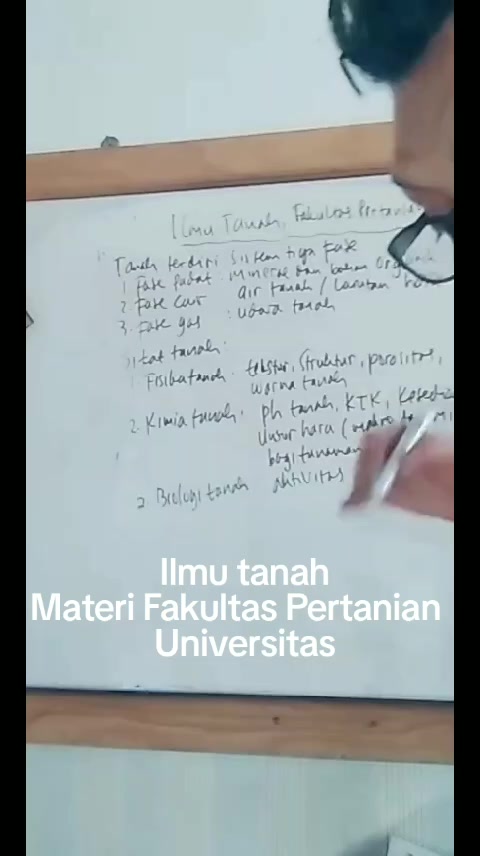 Ilmu Tanah, Fakultas Pertania
Tanah terdiri sistem tiga fase
1. Fase padat : mineral dan bahan organik
2. Fase cair air tanah / larutan
3. Fase gas : udara tanah
Sifat tanah :
1. Fisika tanah : tekstur, struktur, porositas,
warna tanah
2. Kimia tanah : ph tanah, KTK,
Unsur hara (
bagi tanaman
2 Biologi tanah aktivitas
Ilmu tanah
Materi Fakultas Pertanian
Universitas